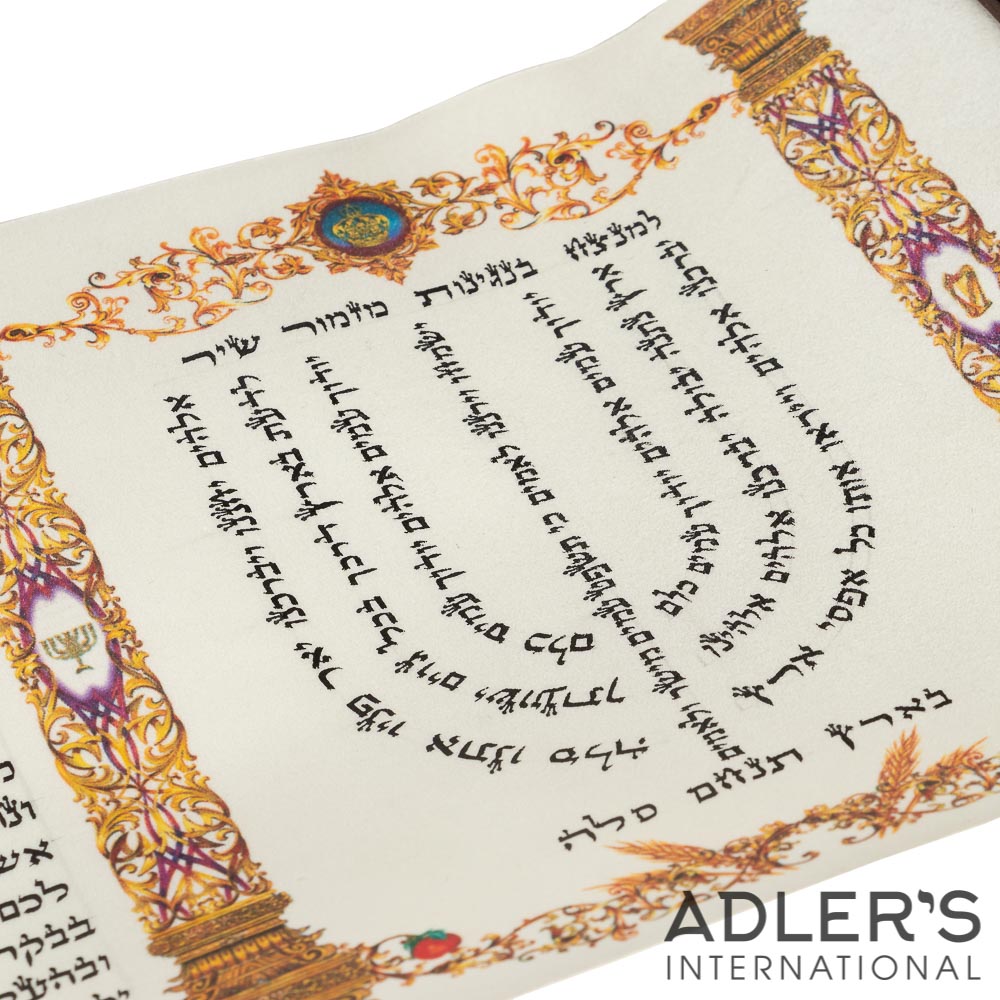 למנצח בנגינות מזמור שיר
אלהים יחננו ויברכנו יאר פניו אתנו סלה
לדעת בארץ דרכך בכל גוים ישועתך
יודוך עמים אלהים יודוך עמים כלם
ישמחו וירננו לאמים כי תשפט עמים מישר ולאמים
יודוך עמים אלהים יודוך עמים כלם
ארץ נתנה יבולה יברכנו אלהים אלהינו
יברכנו אלהים וייראו אותו כל אפסי ארץ
בארץ תנחם סלה
לכם
ADLER'S
INTERNATIONAL